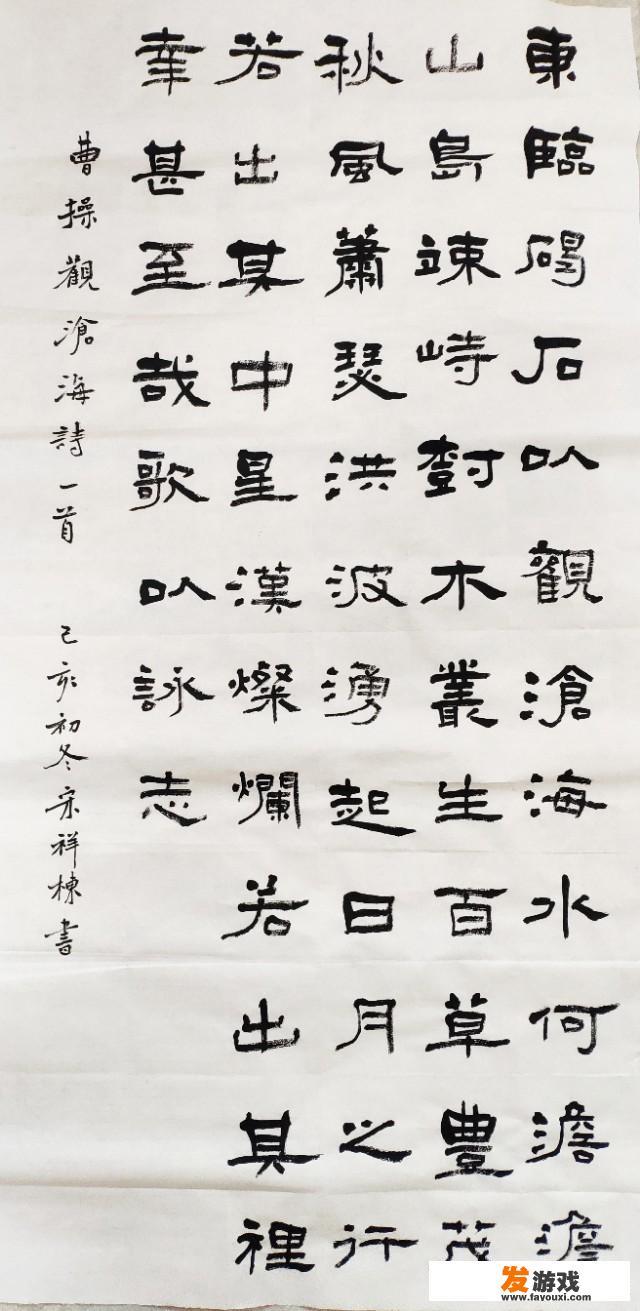 東臨碣石以觀滄海水何澹澹
山島竦峙樹木叢生百草豐茂
秋風蕭瑟洪波湧起日月之行
若出其中星漢燦爛若出其裡
幸甚至哉歌以詠志
曹操觀滄海詩一首 己亥初冬宋祥棟書
发游戏
www.fayouxi.com